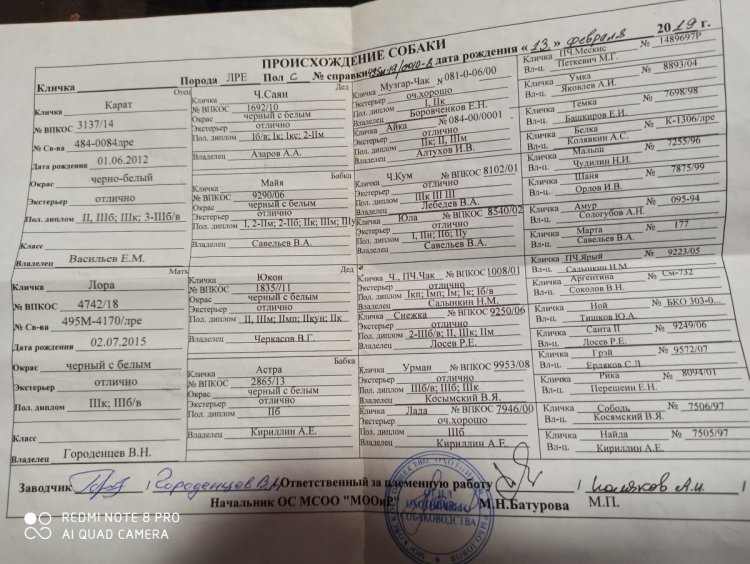 ПРОИСХОЖДЕНИЕ СОБАКИ
Кличка Порода ЛРЕ Пол С № справки дата рождения «13» февраля 2019 г.
Отец
Кличка Карат
№ ВПКОС 3137/14
№ Св-ва 484-0084лре
Дата рождения 01.06.2012
Окрас черно-белый
Экстерьер отлично
Пол. диплом II, IIIб; IIк; 3-IIIб/в
Класс
Владелец Васильев Е.М.
Мать
Кличка Лора
№ ВПКОС 4742/18
№ Св-ва 495М-4170/лре
Дата рождения 02.07.2015
Окрас черный с белым
Экстерьер отлично
Пол. диплом IIIк; IIIб/в
Класс
Владелец Городенцев В.Н.
Дед
Кличка Ч.Саян
№ ВПКОС 1692/10
Окрас черный с белым
Экстерьер отлично
Пол. диплом Iб/в; Iк; Iкс; 2-IIм
Владелец Азаров А.А.
Бабка
Кличка Майя
№ ВПКОС 9290/06
Окрас черный с белым
Экстерьер отлично
Пол. диплом I, 2-IIм; 2-IIб; IIк; IIIм;
Владелец Савельев В.А.
Дед
Кличка Юкон
№ ВПКОС 1835/11
Окрас черный с белым
Экстерьер отлично
Пол. диплом II, IIIм; IIмп; IIкун; IIк
Владелец Черкасов В.Г.
Бабка
Кличка Астра
№ ВПКОС 2865/13
Окрас черный с белым
Экстерьер отлично
Пол. диплом IIб
Владелец Кириллин А.Е.
Кличка Музгар-Чак 081-0-06/00
Экстерьер оч.хорошо
Пол. диплом I, IIк
Владелец Боровченков Е.Н.
Кличка Айка № 084-00/0001
Экстерьер отлично
Пол. диплом IIк; II, IIIм
Владелец Алтухов И.В.
Кличка Ч.Кум № ВПКОС 8102/01
Экстерьер отлично
Пол. диплом IIIк III III
Владелец Лебедев В.А.
Кличка Юла № ВПКОС 8540/02
Экстерьер отлично
Пол. диплом I, IIн; IIб; IIу
Владелец Савельев В.А.
Кличка Ч., ПЧ.Чак № ВПКОС 1008/01
Экстерьер отлично
Пол. диплом Iкп; Iмп; Iм; Iк; Iб/в
Владелец Салынкин Н.М.
Кличка Снежка № ВПКОС 9250/06
Экстерьер отлично
Пол. диплом 2-IIIб/в; II, IIIк; IIм
Владелец Лосев Р.Е.
Кличка Урман № ВПКОС 9953/08
Экстерьер отлично
Пол. диплом IIIб/в; IIIб; IIIк
Владелец Косымский В.Я.
Кличка Лада № ВПКОС 7946/00
Экстерьер оч.хорошо
Пол. диплом IIIб
Владелец Кириллин А.Е.
Кличка ПЧ.Мескис № 1489697Р
Вл-ц. Петкевич М.Г.
Кличка Умка № 8893/04
Вл-ц. Яковлев А.И.
Кличка Темка № 7698/98
Вл-ц. Башкиров Е.И.
Кличка Белка № К-1306/лре
Вл-ц. Колявкин А.С.
Кличка Малыш № 7255/96
Вл-ц. Чудилин Н.И.
Кличка Шаня № 7875/99
Вл-ц. Орлов И.В.
Кличка Амур № 095-94
Вл-ц. Сологубов А.Н.
Кличка Марта № 177
Вл-ц. Савельев В.А.
Кличка ПЧ.Ярый № 9223/05
Вл-ц. Салынкин Н.М.
Кличка Аргентина № См-732
Вл-ц. Соколов В.Н.
Кличка Ной № БКО 303-0...
Вл-ц. Тишков Ю.А.
Кличка Санта II № 9249/06
Вл-ц. Лосев Р.Е.
Кличка Грэй № 9572/07
Вл-ц. Ердяков С.Л.
Кличка Рика № 8094/01
Вл-ц. Перешеин Е.Н.
Кличка Соболь № 7506/97
Вл-ц. Косямский В.Я.
Кличка Найда № 7505/97
Вл-ц. Кириллин А.Е.
Заводчик / Городенцев В.Н. Ответственный за племенную работу / Поляков А.И.
Начальник ОС МСОО "МООиР" М.Н.Батурова М.П.
ОТДЕЛ
ОХОТНИЧЬЕГО
СОБАКОВОДСТВА
REDMI NOTE 8 PRO
AI QUAD CAMERA